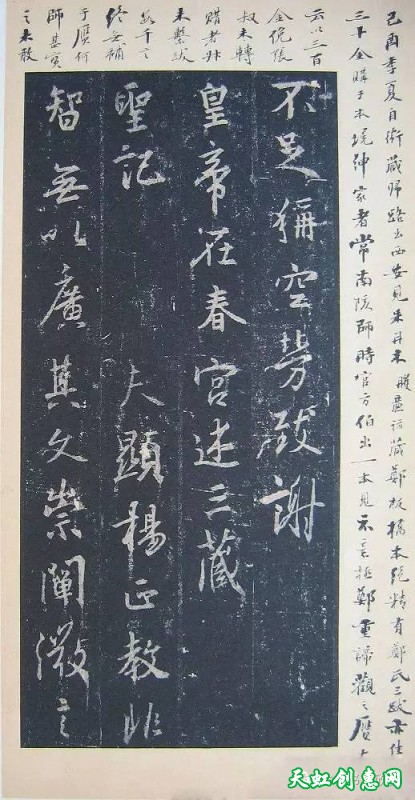 己酉季夏自衛藏歸路出西安見朱丹木
藏鄭板橋本絕精有鄭氏三跋亦佳
三十金購于本境紳家者常南陔師時官方伯出一本見示至極鄭重諦觀之贋
云以三百
金倪
叔未轉
贈者并
未繫跋
若干之
終無補
于贋何
師甚寶
之未敢
不足稱空勞致謝
皇帝在春宮述三藏
聖記 夫顯揚正教非
智無以廣其文崇闡微言
天虹创意网